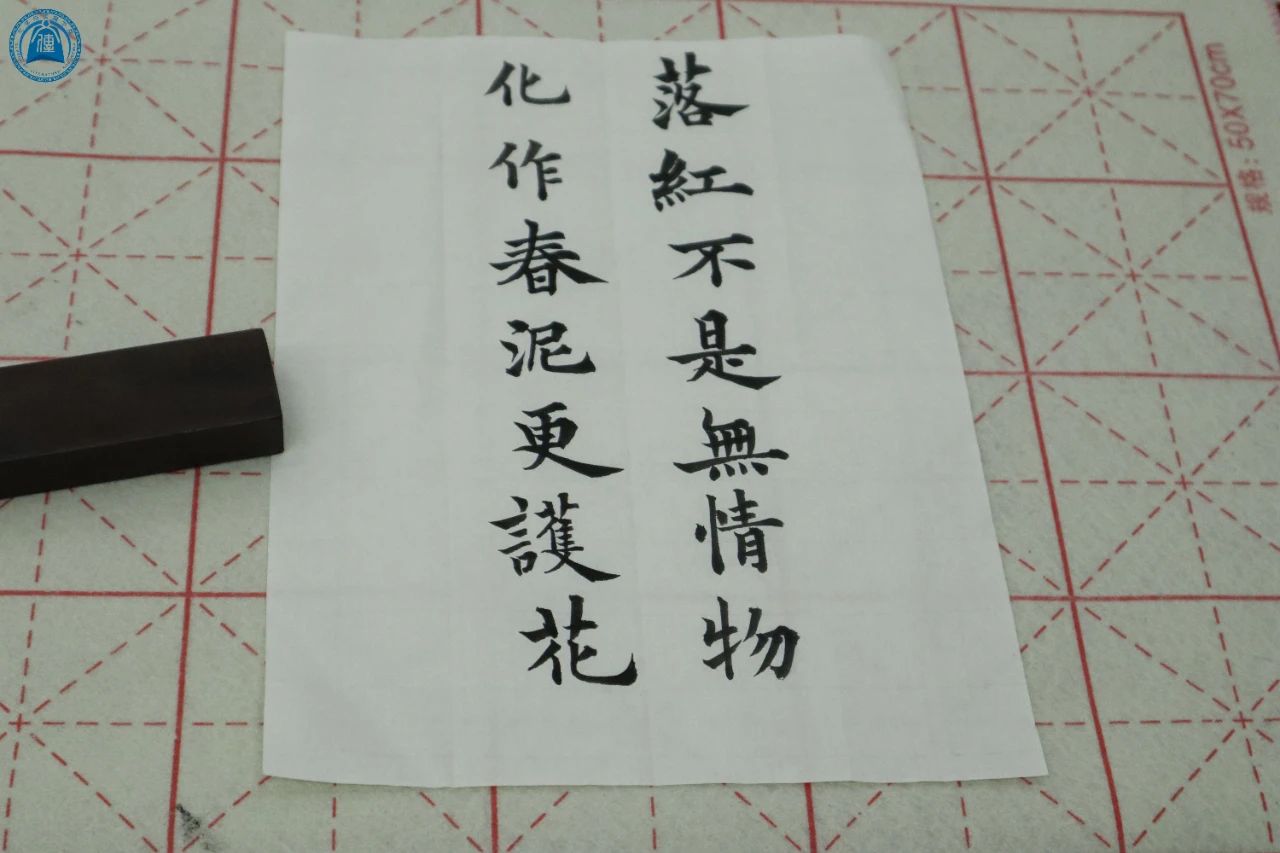 落紅不是無情物
化作春泥更護花
規格：50X70cm